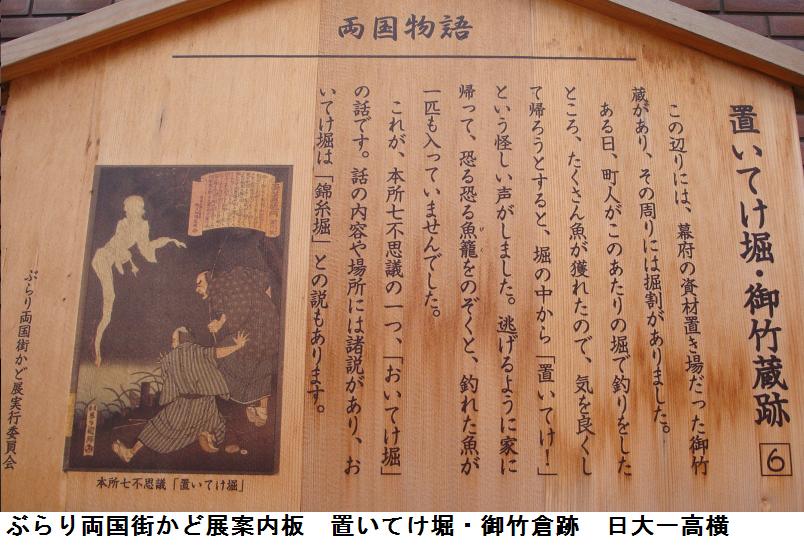 両国物語
置いてけ堀・御竹蔵跡 6
この辺りには、幕府の資材置き場だった御竹
蔵があり、その周りには掘割がありました。
ある日、町人がこのあたりの堀で釣りをした
ところ、たくさん魚が獲れたので、気を良くし
て帰ろうとすると、堀の中から「置いてけ！」
という怪しい声がしました。逃げるように家に
帰って、恐る恐る魚籠をのぞくと、釣れた魚が
一匹も入っていませんでした。
これが、本所七不思議の一つ、「おいてけ堀」
の話です。話の内容や場所には諸説があり、お
いてけ堀は「錦糸堀」との説もあります。
本所七不思議「置いてけ堀」
ぶらり両国街かど展実行委員会
ぶらり両国街かど展案内板　置いてけ堀・御竹倉跡　日大一高横